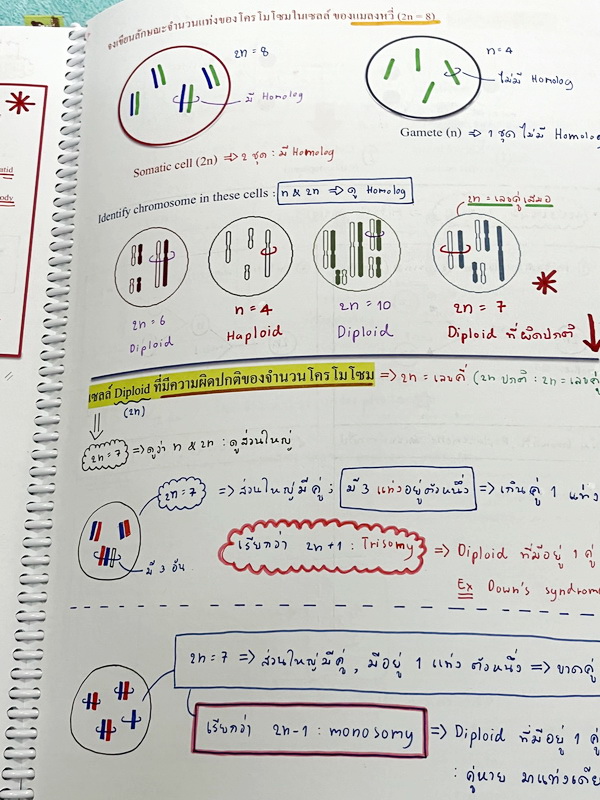 จงเขียนลักษณะจำนวนแท่งของโครโมโซมในเซลล์ ของแมลงหวี่ (2n = 8)
2n = 8
n = 4
มี Homolog
ไม่มี Homolog
Gamete (n) ⇒ 1 ชุด ไม่มี Homolog
Somatic cell (2n) ⇒ 2 ชุด : มี Homolog
Identify chromosome in these cells : n & 2n ⇒ ดู Homolog
2n = เลขคู่เสมอ
2n = 6
n = 4
2n = 10
2n = 7
Diploid
Haploid
Diploid
Diploid ที่ผิดปกติ
เซลล์ Diploid ที่มีความผิดปกติของจำนวนโครโมโซม ⇒ 2n = เลขคี่ (2n ปกติ : 2n = เลขคู่
(2n)
2n = 7 ⇒ ดูว่า n & 2n : ดูส่วนใหญ่
2n = 7 ⇒ ส่วนใหญ่มีคู่ ; มี 3 แท่งอยู่ตัวหนึ่ง ⇒ เกินคู่ 1 แท่ง
เรียกว่า 2n+1 : Trisomy ⇒ Diploid ที่มีอยู่ 1 คู่
มี 3 อัน
Ex Down's syndrome
2n = 7 ⇒ ส่วนใหญ่มีคู่ , มีอยู่ 1 แท่ง ตัวหนึ่ง ⇒ ขาดคู่
เรียกว่า 2n-1 : monosomy ⇒ Diploid ที่มีอยู่ 1 คู่
: คู่หาย มาแท่งเดีย